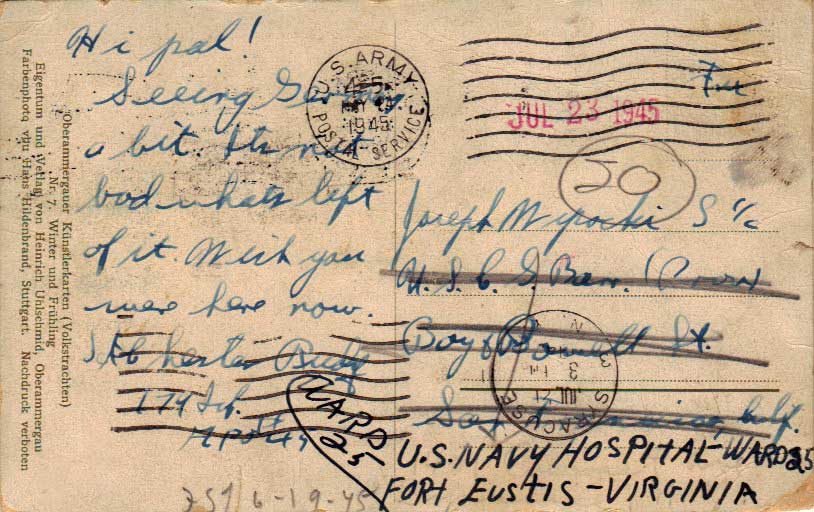 Hi pal!
Seeing Germany
a bit. Its not
bad whats left
of it. Wish you
were here now.
174
U.S. ARMY
MAY
1945
POSTAL SERVICE
Free
JUL 23 1945
50
Joseph S 1/c
U.S.C.G. Barr. (Room)
Bay & Powell St.
San Francisco, Calif.
SYRACUSE
JUL
WARD
25
U.S. NAVY HOSPITAL-WARD 25
FORT EUSTIS-VIRGINIA
6-19-45
Oberammergauer Künstlerkarten (Volkstrachten)
Nr. 7. Winter und Frühling
Eigentum und Verlag von Heinrich Uhlschmid, Oberammergau
Farbenphoto von Hans Hildenbrand, Stuttgart. Nachdruck verboten